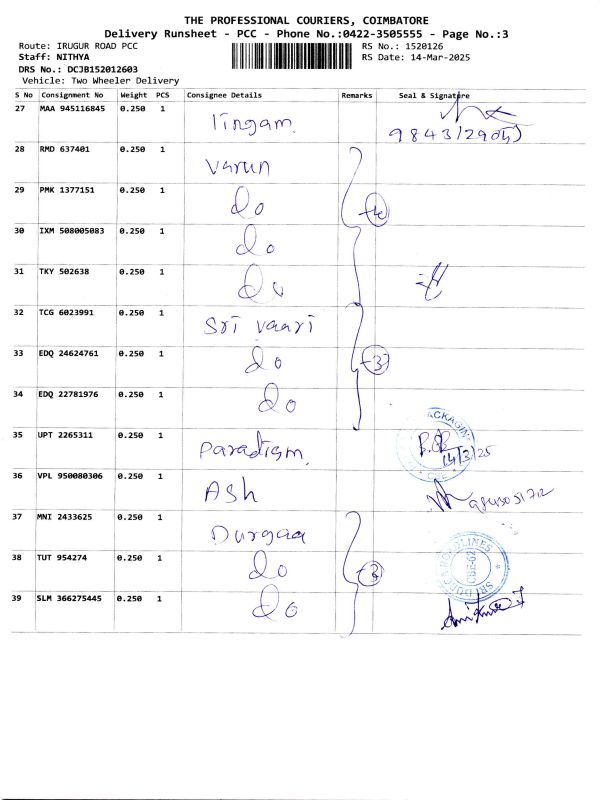 THE PROFESSIONAL COURIERS, COIMBATORE
Delivery Runsheet - PCC - Phone No.:0422-3505555 - Page No.:3
Route: IRUGUR ROAD PCC RS No.: 1520126
Staff: NITHYA RS Date: 14-Mar-2025
DRS No.: DCJB152012603
Vehicle: Two Wheeler Delivery
S No Consignment No Weight PCS Consignee Details Remarks Seal & Signature
27 MAA 945116845 0.250 1 lingam
28 RMD 637401 0.250 1 varun
29 PMK 1377151 0.250 1 do
30 IXM 508005083 0.250 1 do
31 TKY 502638 0.250 1 do
32 TCG 6023991 0.250 1 Sri vaari
33 EDQ 24624761 0.250 1 do -3
34 EDQ 22781976 0.250 1 do
35 UPT 2265311 0.250 1 Paradigm 14/3/25
36 VPL 950080306 0.250 1 Ash
37 MNI 2433625 0.250 1 Durgaa
38 TUT 954274 0.250 1 do -3
39 SLM 366275445 0.250 1 do